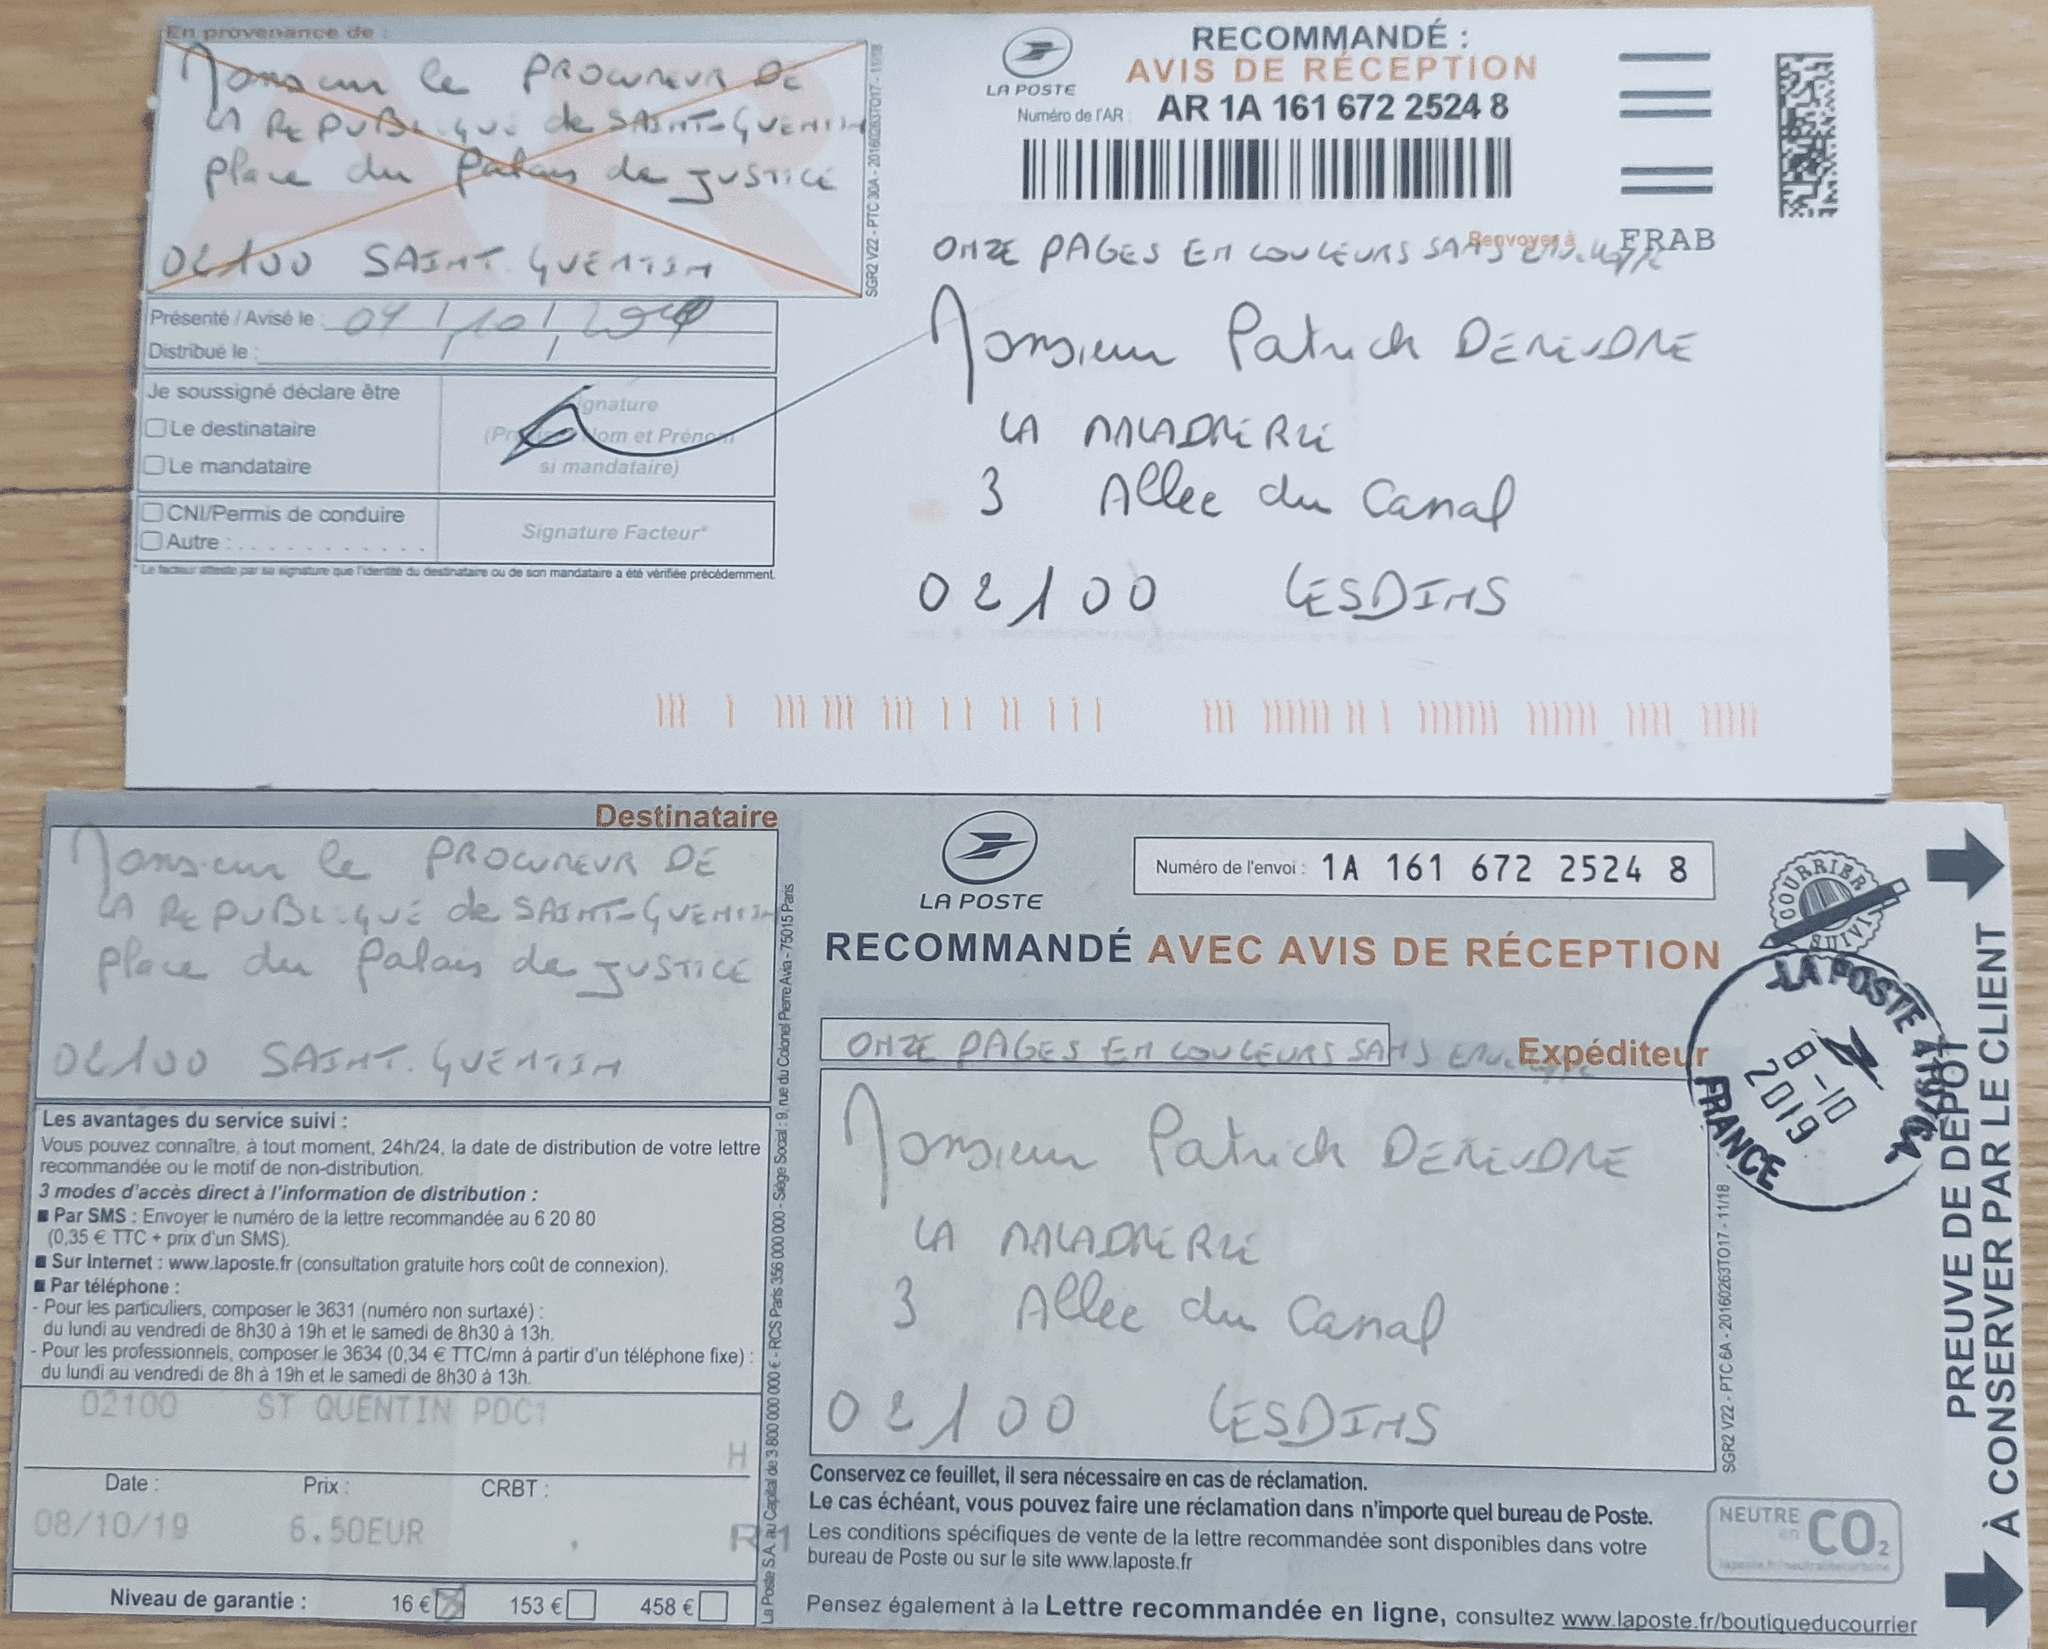 En provenance de :
Monsieur le PROCUREUR DE
LA REPUBLIQUE de SAINT-QUENTIN
place du Palais de JUSTICE
02100 SAINT-QUENTIN
SGR2 V22 - PTC 30A - 20160263TO17 - 11/18
Présenté / Avisé le : 09 / 10 /
Distribué le : / /
Je soussigné déclare être
Le destinataire
Le mandataire
Signature
(Précisez Nom et Prénom
si mandataire)
CNI/Permis de conduire
Autre : . . . . . . . . . . .
Signature Facteur*
* Le facteur atteste par sa signature que l'identité du destinataire ou de son mandataire a été vérifiée précédemment.
LA POSTE
RECOMMANDÉ :
AVIS DE RÉCEPTION
Numéro de l'AR : AR 1A 161 672 2524 8
Renvoyer à FRAB
ONZE PAGES EN COULEURS SANS ENVELOPPE
Monsieur Patrick DEREUDRE
LA MALADRERIE
3 Allée du Canal
02100 LESDINS
Destinataire
Monsieur le PROCUREUR DE
LA REPUBLIQUE de SAINT-QUENTIN
place du Palais de JUSTICE
02100 SAINT-QUENTIN
Les avantages du service suivi :
Vous pouvez connaître, à tout moment, 24h/24, la date de distribution de votre lettre
recommandée ou le motif de non-distribution.
3 modes d'accès direct à l'information de distribution :
Par SMS : Envoyer le numéro de la lettre recommandée au 6 20 80
(0,35 € TTC + prix d'un SMS).
Sur Internet : www.laposte.fr (consultation gratuite hors coût de connexion).
Par téléphone :
- Pour les particuliers, composer le 3631 (numéro non surtaxé) :
du lundi au vendredi de 8h30 à 19h et le samedi de 8h30 à 13h.
- Pour les professionnels, composer le 3634 (0,34 € TTC/mn à partir d'un téléphone fixe) :
du lundi au vendredi de 8h à 19h et le samedi de 8h30 à 13h.
02100 ST QUENTIN PDC1
H
Date : Prix : CRBT :
08/10/19 6.50EUR .
R1
Niveau de garantie : 16 € 153 € 458 €
La Poste S.A. au Capital de 3 800 000 000 € - RCS Paris 356 000 000 - Siège Social : 9, rue du Colonel Pierre Avia - 75015 Paris
LA POSTE
Numéro de l'envoi : 1A 161 672 2524 8
RECOMMANDÉ AVEC AVIS DE RÉCEPTION
COURRIER SUIVI
Expéditeur
ONZE PAGES EN COULEURS SANS ENVELOPPE
Monsieur Patrick DEREUDRE
LA MALADRERIE
3 Allée du Canal
02100 LESDINS
LA POSTE
8-10
2019
FRANCE
SGR2 V22 - PTC 6A - 20160263TO17 - 11/18
Conservez ce feuillet, il sera nécessaire en cas de réclamation.
Le cas échéant, vous pouvez faire une réclamation dans n'importe quel bureau de Poste.
Les conditions spécifiques de vente de la lettre recommandée sont disponibles dans votre
bureau de Poste ou sur le site www.laposte.fr
Pensez également à la Lettre recommandée en ligne, consultez www.laposte.fr/boutiqueducourrier
NEUTRE
en CO2
laposte.fr/neutralitecarbone
PREUVE DE DÉPÔT
À CONSERVER PAR LE CLIENT